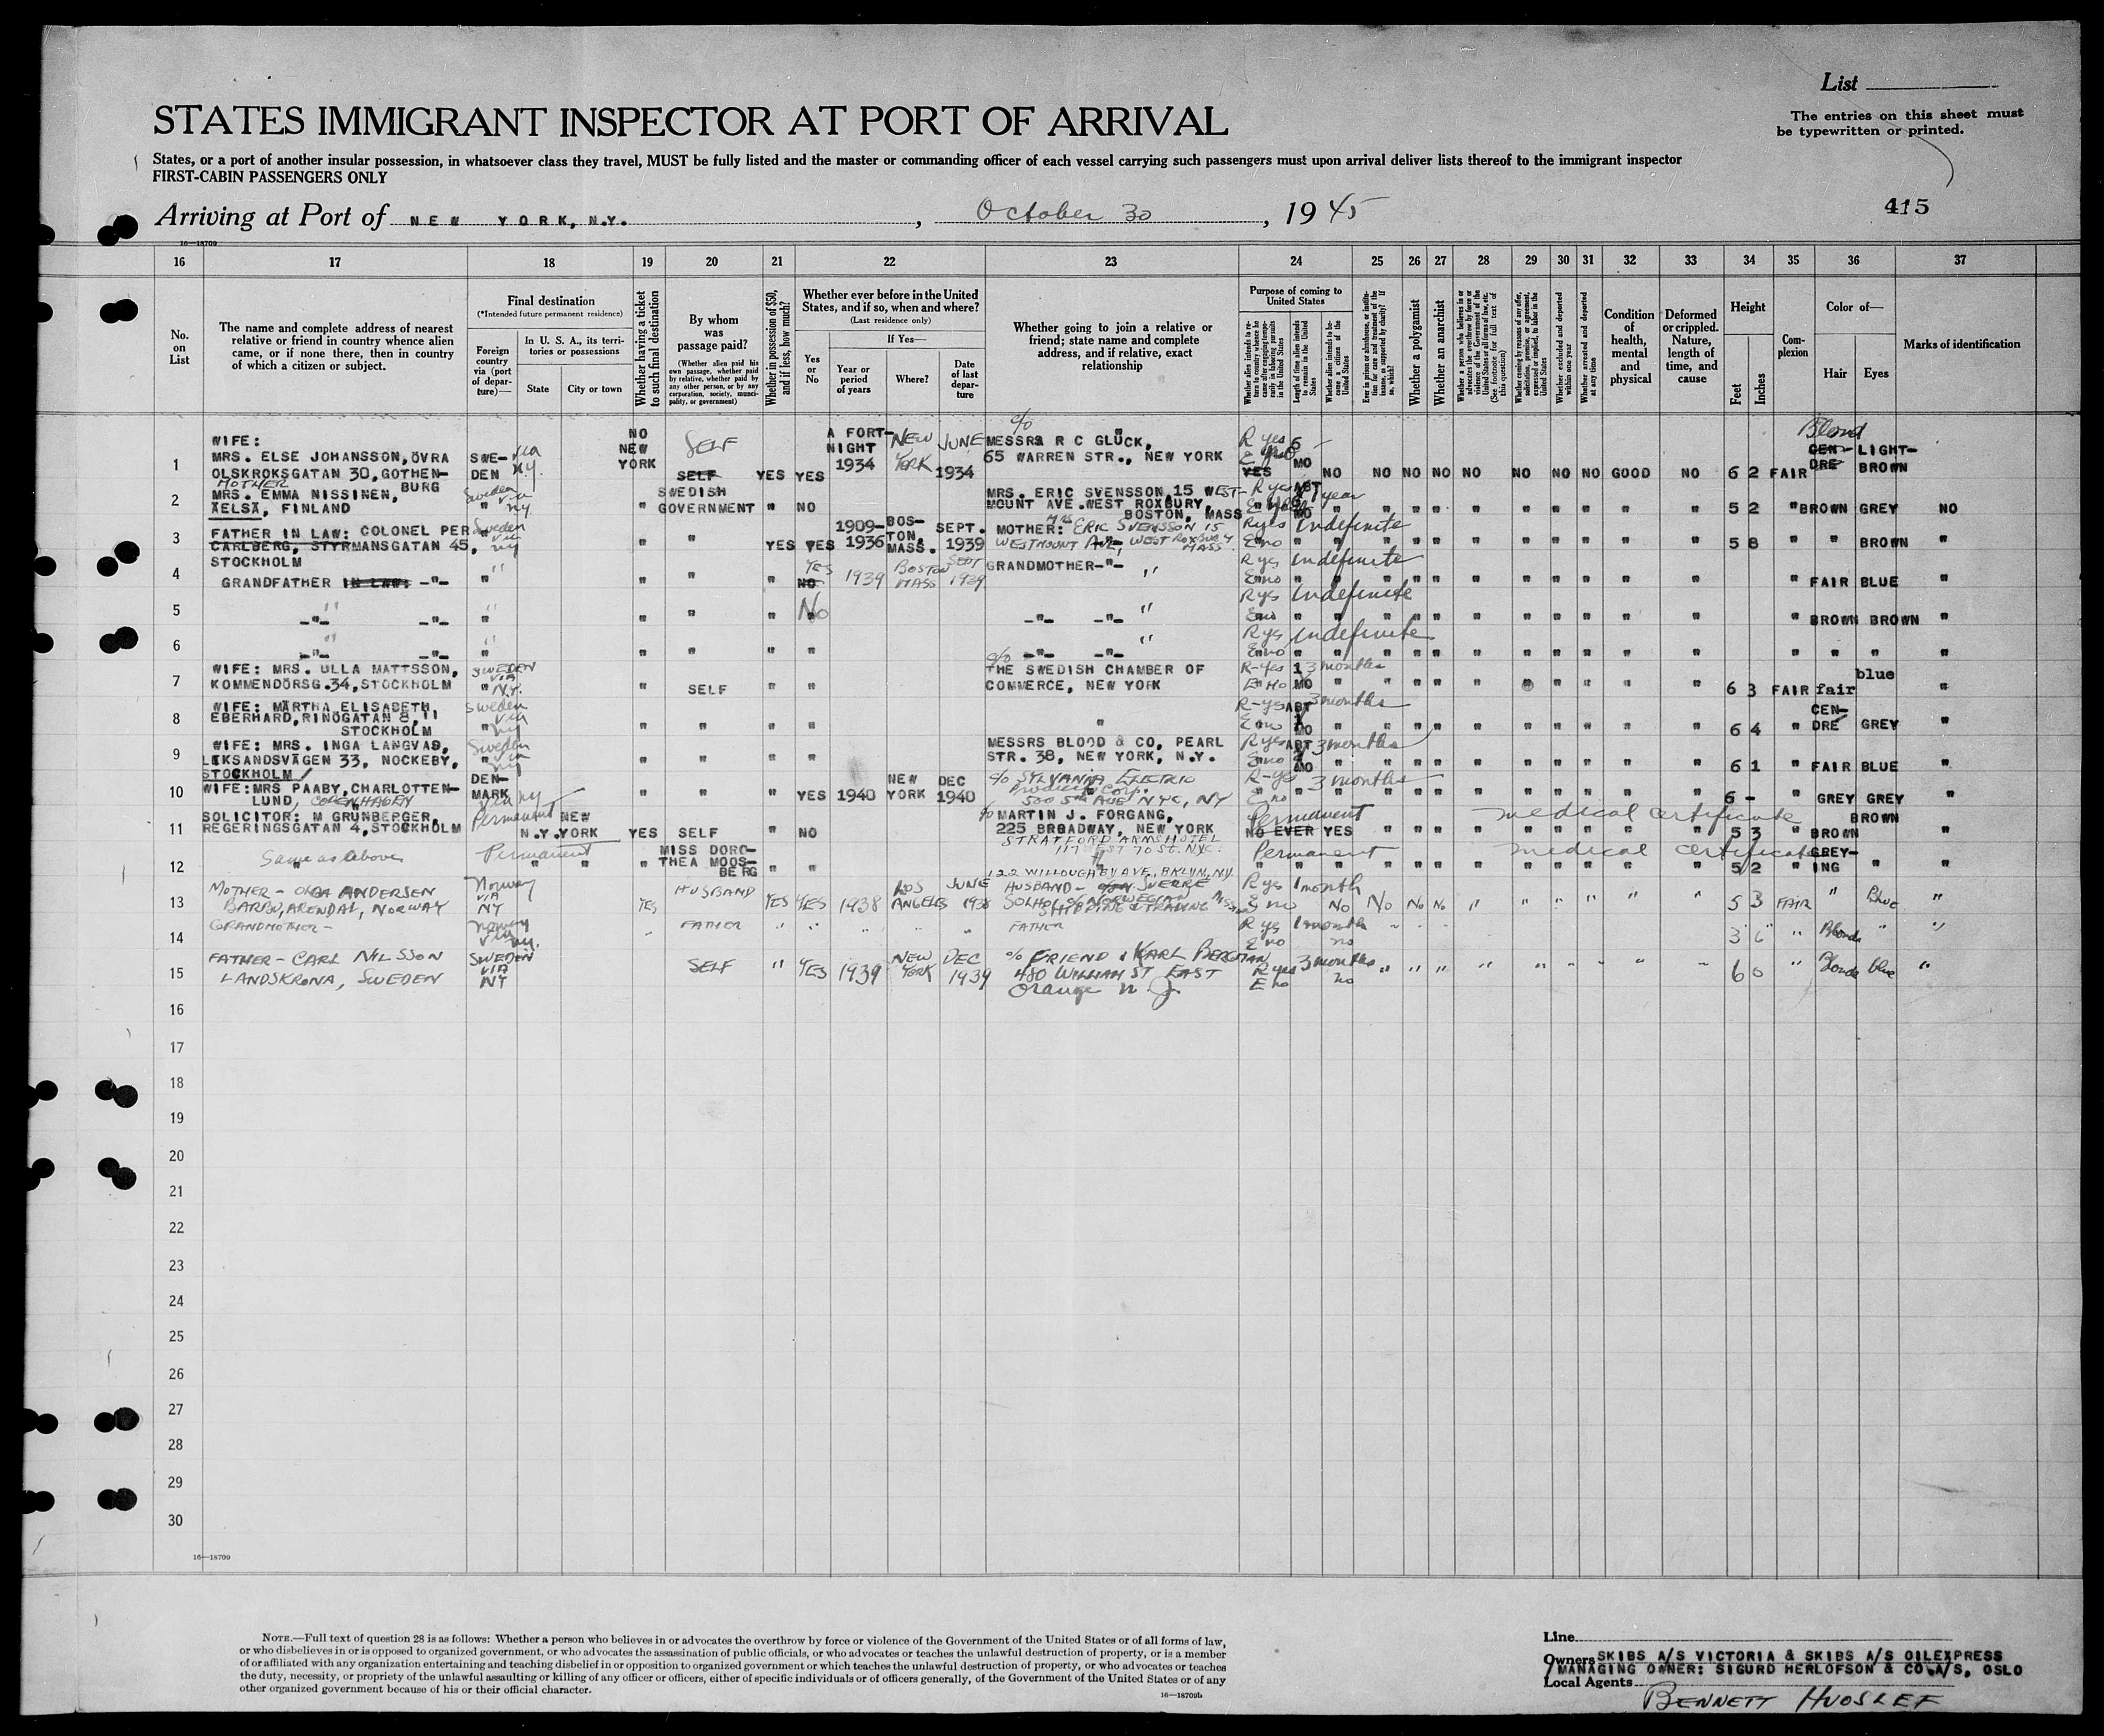 List
The entries on this sheet must
be typewritten or printed.
STATES IMMIGRANT INSPECTOR AT PORT OF ARRIVAL
States, or a port of another insular possession, in whatsoever class they travel, MUST be fully listed and the master or commanding officer of each vessel carrying such passengers must upon arrival deliver lists thereof to the immigrant inspector
FIRST-CABIN PASSENGERS ONLY
Arriving at Port of NEW YORK, N.Y. , October 30 , 19 45
415
16—18709
16 17 18 19 20 21 22 23 24 25 26 27 28 29 30 31 32 33 34 35 36 37
No. on List
The name and complete address of nearest
relative or friend in country whence alien
came, or if none there, then in country
of which a citizen or subject.
Final destination
(*Intended future permanent residence)
Foreign country via (port of departure)—
In U. S. A., its territories or possessions
State
City or town
Whether having a ticket to such final destination
By whom was passage paid?
(Whether alien paid his own passage, whether paid by relative, whether paid by any other person, or by any corporation, society, municipality, or government)
Whether in possession of $50, and if less, how much?
Whether ever before in the United
States, and if so, when and where?
(Last residence only)
Yes or No
If Yes—
Year or period of years
Where?
Date of last departure
Whether going to join a relative or
friend; state name and complete
address, and if relative, exact
relationship
Purpose of coming to United States
Length of time alien intends to remain in the United States
Whether alien intends to become a citizen of the United States
Whether a polygamist
Whether an anarchist
Whether excluded and deported within one year
Whether arrested and deported at any time
Condition of health, mental and physical
Deformed or crippled. Nature, length of time, and cause
Height
Feet
Inches
Complexion
Color of—
Hair
Eyes
Marks of identification
1 WIFE: MRS. ELSE JOHANSSON, ÖVRA OLSKROKSGATAN 30, GOTHENBURG SWEDEN via N.Y. NO NEW YORK SELF SELF YES YES A FORTNIGHT 1934 NEW YORK JUNE 1934 c/o MESSRS R C GLÜCK, 65 WARREN STR., NEW YORK R yes YES 6 MO NO NO NO NO NO NO NO NO GOOD NO 6 2 FAIR Blond CENDRE LIGHT-BROWN
2 MOTHER MRS. EMMA NISSINEN, AELSÄ, FINLAND Sweden via ny " SWEDISH GOVERNMENT " NO MRS. ERIC SVENSSON, 15 WESTMOUNT AVE. WEST ROXBURY, BOSTON, MASS 5 2 " BROWN GREY NO
3 FATHER IN LAW: COLONEL PER CARLBERG, STYRMANSGATAN 45, STOCKHOLM Sweden via ny " " YES YES 1909-1936 BOSTON, MASS. SEPT. 1939 MOTHER: MRS ERIC SVENSSON 15 WESTMOUNT AVE, WEST ROXBURY MASS R yes E no Indefinite 5 8 " " BROWN "
4 GRANDFATHER IN LAW: -"- " " " " YES NO 1939 BOSTON MASS SEPT 1939 GRANDMOTHER -"- " R yes E no Indefinite " FAIR BLUE "
5 -"- -"- " " " " No -"- -"- " R yes E no Indefinite " BROWN BROWN "
6 -"- -"- " " " " " -"- -"- " R yes E no Indefinite " " " "
7 WIFE: MRS. ULLA MATTSSON, KOMMENDÖRSG.34, STOCKHOLM SWEDEN VIA N.Y. " SELF " " c/o THE SWEDISH CHAMBER OF COMMERCE, NEW YORK R-yes E no 3 months 6 3 FAIR fair blue "
8 WIFE: MÄRTHA ELISABETH EBERHARD, RINGGATAN 8, 11 STOCKHOLM Sweden via ny " " " " " R-yes E no 3 months 6 4 " CENDRE GREY "
9 WIFE: MRS. INGA LANGVAD, LEKSANDSVÄGEN 33, NOCKEBY, STOCKHOLM Sweden via ny " " " " MESSRS BLOOD & CO, PEARL STR. 38, NEW YORK, N.Y. R yes E no 3 months 6 1 " FAIR BLUE "
10 WIFE: MRS PAABY, CHARLOTTENLUND, COPENHAGEN DENMARK via ny " " " YES 1940 NEW YORK DEC 1940 c/o SYLVANIA ELECTRIC Products Corp. 500 5th AVE NYC, NY R-yes E no 3 months 6 - " GREY GREY "
11 SOLICITOR: M GRUNBERGER, REGERINGSGATAN 4, STOCKHOLM Permanent N.Y. NEW YORK YES SELF " NO c/o MARTIN J. FORGANG, 225 BROADWAY, NEW YORK STRATFORD ARMS HOTEL 117 WEST 70 ST. NYC. Permanent NO EVER YES medical certificate 5 3 " BROWN BROWN "
12 Same as above Permanent " " " MISS DOROTHEA MOOSBERG " " " Permanent medical certificate 5 2 " GREYING " "
13 MOTHER - OLGA ANDERSEN BARBU, ARENDAL, NORWAY Norway VIA NY YES HUSBAND YES YES 1938 LOS ANGELES JUNE 1938 122 WILLOUGHBY AVE, BKLYN, NY HUSBAND - SVERRE SOLHOL c/o NORWEGIAN SHIPPING & TRADING MISSION R yes E no 1 month No No No No 5 3 FAIR " Blue "
14 GRANDMOTHER - Norway via ny. " FATHER " " " " " FATHER R yes E no 1 month no 3 6 " Blonde " "
15 FATHER - CARL NILSSON LANDSKRONA, SWEDEN SWEDEN VIA NY SELF " YES 1939 NEW YORK DEC 1939 c/o FRIEND, KARL BERGMAN 480 WILLIAM ST EAST Orange N.J. R yes E no 3 months no 6 0 " Blonde blue "
16
17
18
19
20
21
22
23
24
25
26
27
28
29
30
16—18709
NOTE.—Full text of question 28 is as follows: Whether a person who believes in or advocates the overthrow by force or violence of the Government of the United States or of all forms of law,
or who disbelieves in or is opposed to organized government, or who advocates the assassination of public officials, or who advocates or teaches the unlawful destruction of property, or is a member
of or affiliated with any organization entertaining and teaching disbelief in or opposition to organized government or which teaches the unlawful destruction of property, or who advocates or teaches
the duty, necessity, or propriety of the unlawful assaulting or killing of any officer or officers, either of specific individuals or of officers generally, of the Government of the United States or of any
other organized government because of his or their official character.
16—18709b
Line
Owners SKIBS A/S VICTORIA & SKIBS A/S OILEXPRESS
MANAGING OWNER: SIGURD HERLOFSON & CO A/S, OSLO
Local Agents
BENNETT HVOSLEF